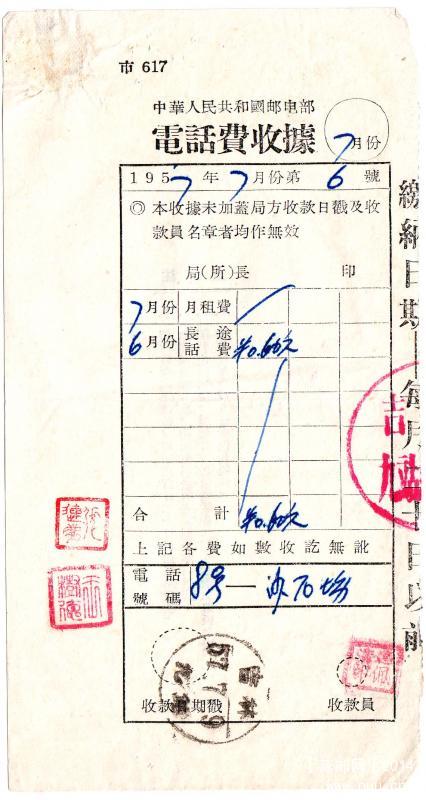 市 617
中華人民共和國邮电部
電話費收據
7月份
1957年7月份第 6 號
◎ 本收據未加蓋局方收款日戳及收
款員名章者均作無效
局(所)長 印
7月份 月租費
6月份 長途話費 ¥0.60
合計 ¥0.60
上記各費如數收訖無訛
電話號碼 8号—
收款日期戳 收款員
繳納日期—每月
日以前